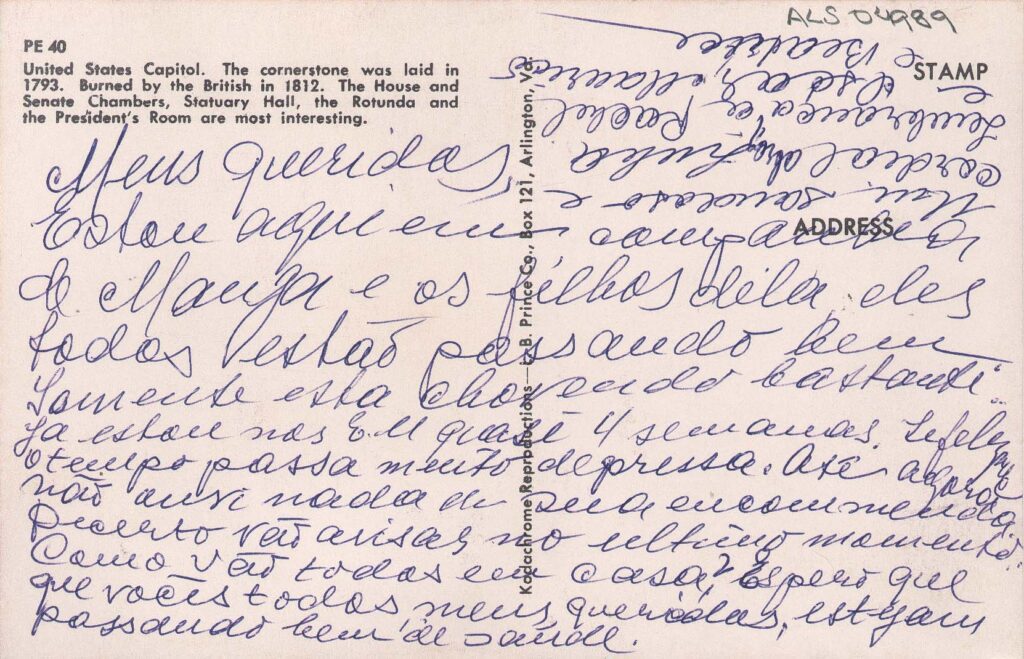 ALS 04989
PE 40
United States Capitol. The cornerstone was laid in
1793. Burned by the British in 1812. The House and
Senate Chambers, Statuary Hall, the Rotunda and
the President's Room are most interesting.
STAMP
ADDRESS
Kodachrome Reproductions—L. B. Prince Co., Box 121, Arlington, Va.
Meus queridos,
Estou aqui em companhia
de e os filhos dela. eles
todos estão passando bem
Somente esta chovendo bastante..
Ja estou nos E.U quase 4 semanas. Infelizmente
o tempo passa muito depressa. Até agora
não ouvi nada de sua encommenda
Decerto vão avisar no ultimo momento.
Como vão todos em casa? Espero que
que vocês todos, meus queridos, estejam
passando bem de saúde.
Um saudoso e
cordial abraço,
Lembrança e Rachel
e
e Beatrice